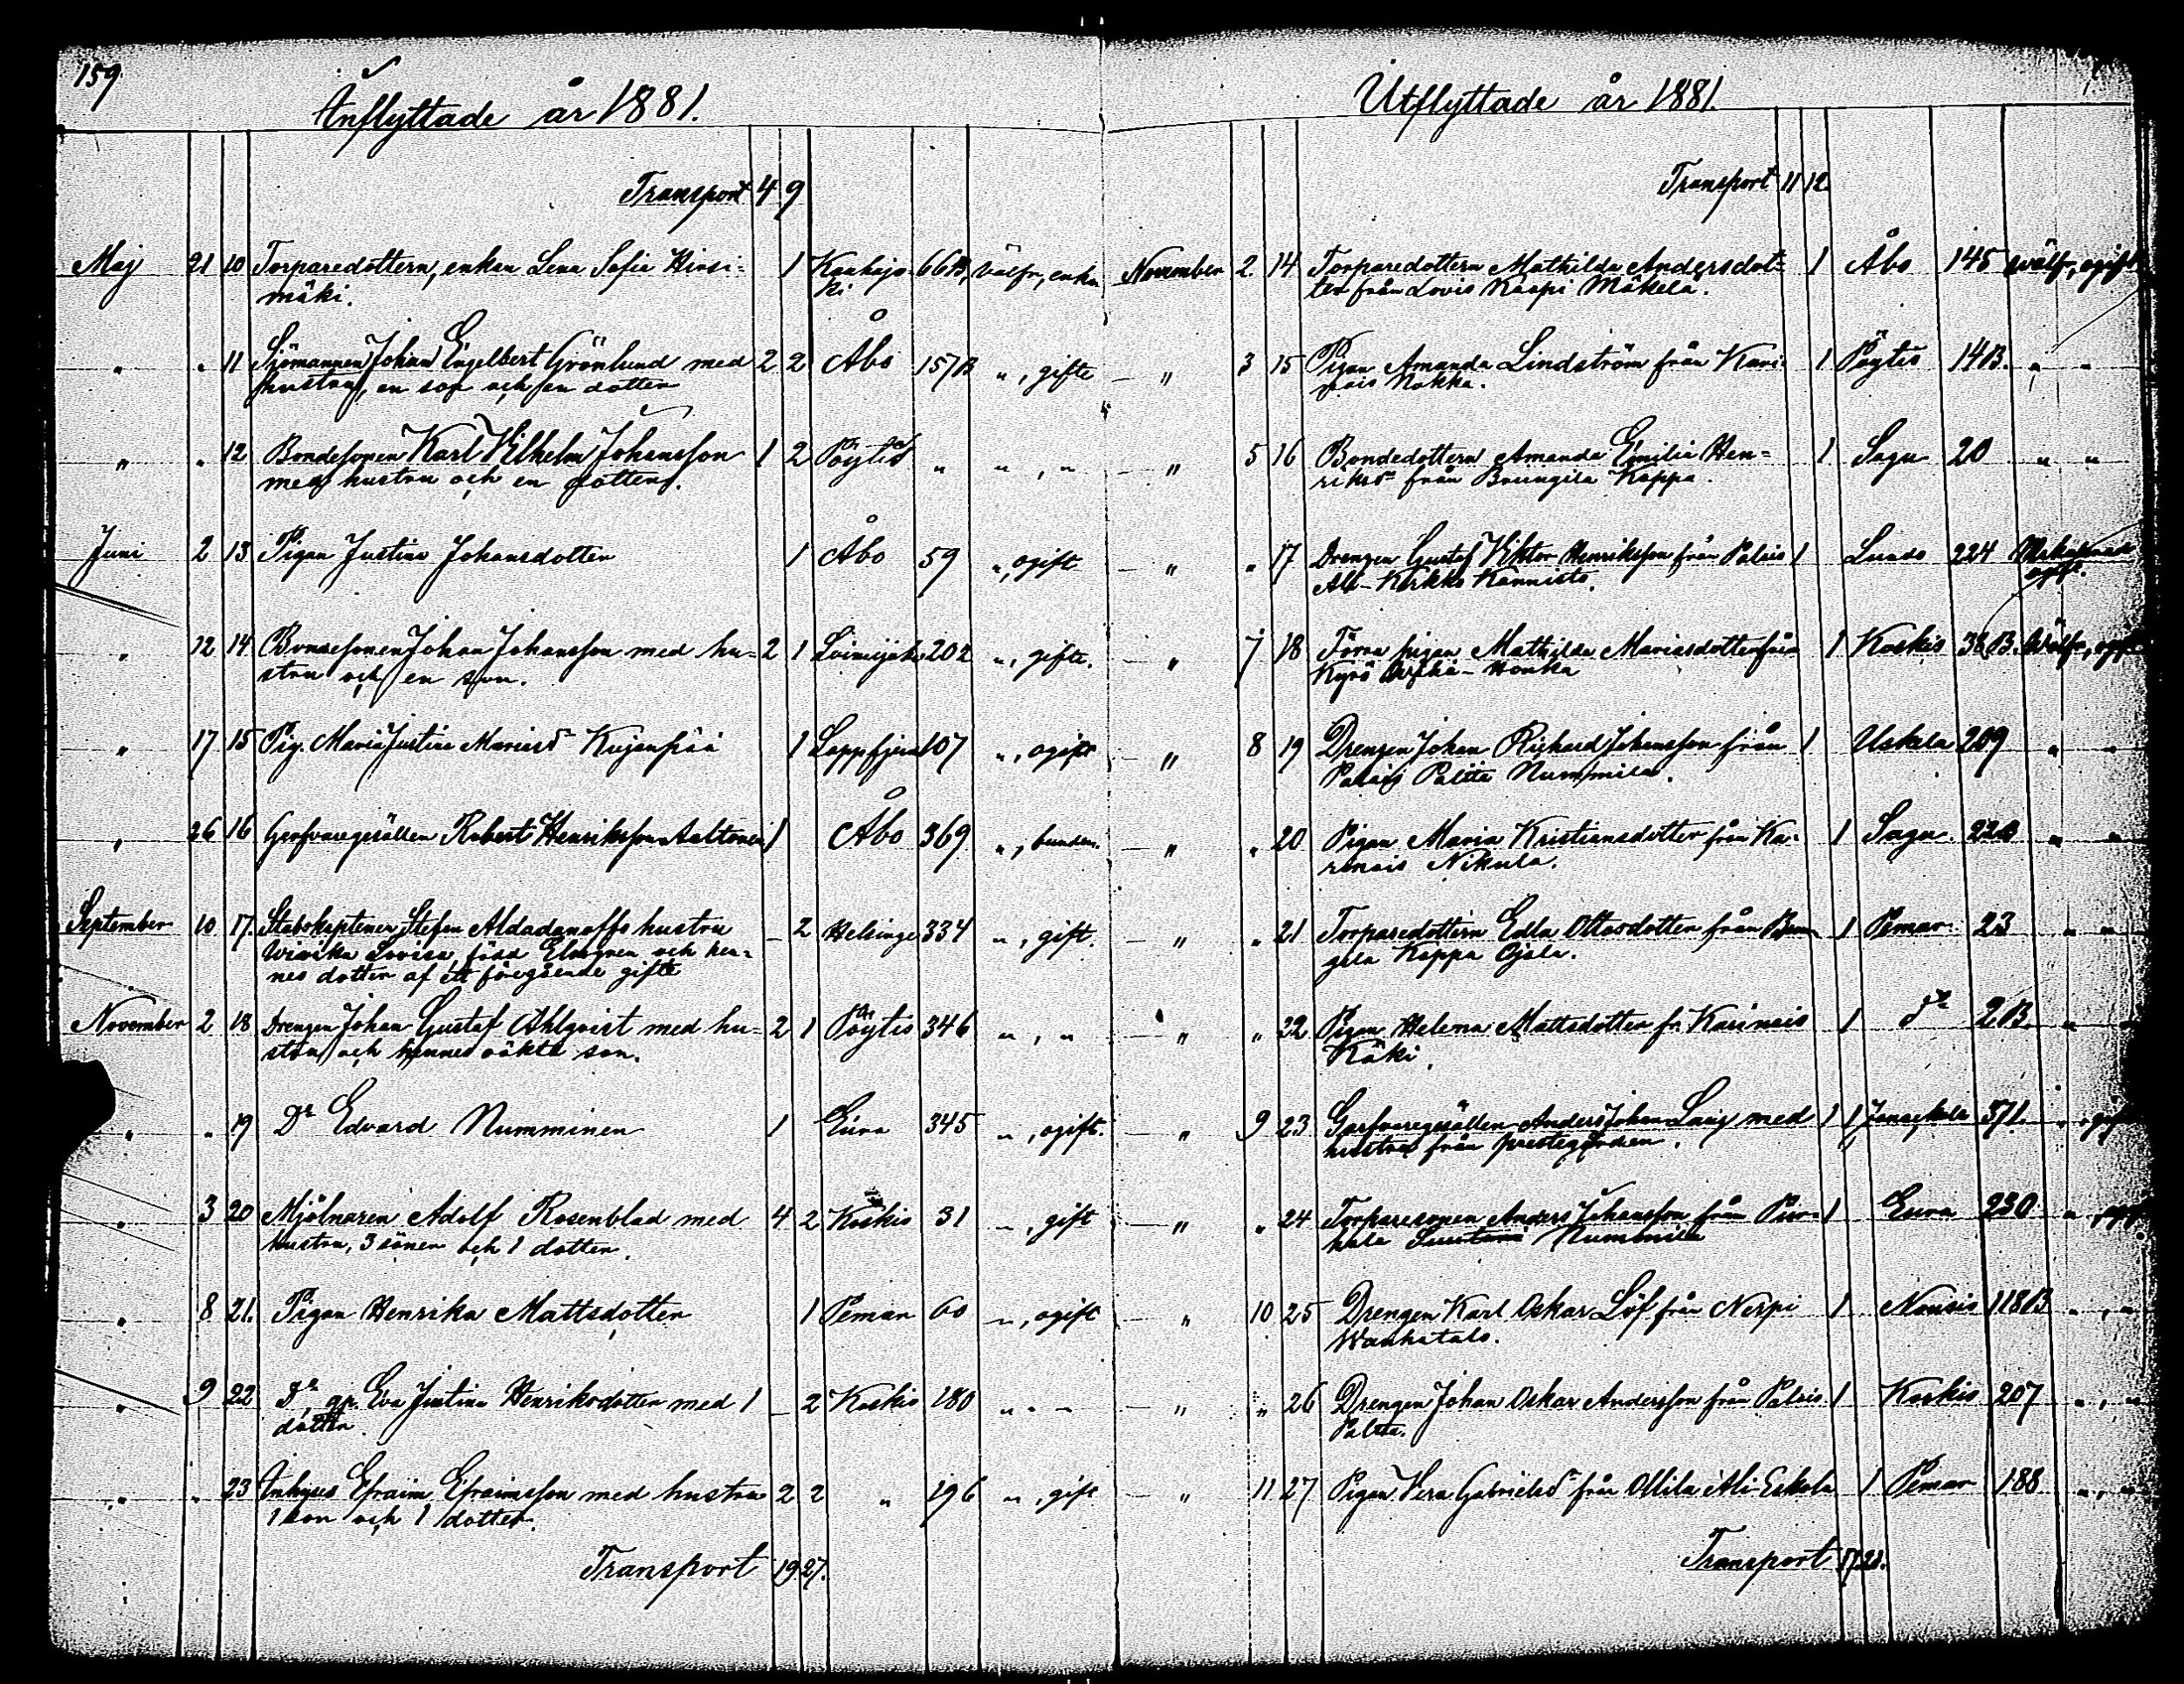 159
Inflyttade år 1881.
Transport 4 9
Maj 21 10 Torparedottern, enkan Lena Sofia Hirsi- 1 66B, välfr, enka
mäki.
" " 11 Sjömannen Johan Engelbert Grönlund med 2 2 Åbo 157B ", gifte
hustru, en son och en dotter
" " 12 Bondesonen Karl Vilhelm Johansson 1 2 Pöytis " " , "
med hustru och en dotter.
Juni 2 13 Pigan Justina Johansdotter 1 Åbo 59 ", ogift
" 12 14 Bondesonen Johan Johansson med hu- 2 1 Loimijoki 202 ", gifte.
stru och en son.
" 17 15 Pig. Maria Justina Mariasdr Kujanpää 1 Lappfjärd 107 ", ogift
" 26 16 Garfvaregesällen Robert Henriksson Aaltonen 1 Åbo 369 ", bunden.
September 10 17. Stabskaptenen Stefan Aldadanoffs hustru _ 2 Helsinge 334 ", gift.
Wivika Lovisa, född Elmgren och hen-
nes dotter af ett föregående gifte
November 2 18 Drengen Johan Gustaf Ahlqvist med hu- 2 1 Pöytis 346 ", "
stru och hennes oäkta son.
" " 19 Dr Edvard Numminen 1 Eura 345 ", ogift.
" 3 20 Mjölnaren Adolf Rosenblad med 4 2 Koskis 31 ", gift
hustru, 3 söner och 1 dotter.
" 8 21. Pigan Henrika Mattsdotter 1 Pemar 60 ", ogift
" 9 22 Dr, gp. Eva Justina Henriksdotter med 1 _ 2 Koskis 180 " " "
dotter.
" " 23 Inhyses Efraim Efraimsson med hustru 2 2 " 196 ", gift
1 son och 1 dotter.
Transport 19 27.
Utflyttade år 1881.
Transport 11 12
November 2 14 Torparedottern Mathilda Andersdot- 1 Åbo 145 wälfr, ogift
ter från Lovis Kaapi Mäkelä.
" 3 15 Pigan Amanda Lindström från Kari- 1 Pöytis 14B. " "
nais Nokka.
" 5 16 Bondedottern Amanda Emilia Hen- 1 Sagu 20 " "
riksdr från Bungila Kappa.
" " 17 Drengen Gustaf Viktor Henriksson från Palais 1 Lundo 224
Ali-Kirkko Kannisto.
" 7 18 Förra pigan Mathilda Mariasdotter från 1 Koskis 38B. Wälfr, ogift
Kyrö Honka
" 8 19 Drengen Johan Richard Johansson från 1 Uskela 209 " "
Palais Paltta Nummila.
" " 20 Pigan Maria Kristiansdotter från Ka- 1 Sagu " "
rinais Nikula.
" " 21 Torparedottern Edla Ottosdotter från Bun- 1 Pemar 23 " "
gila Kappa Ojala.
" " 22 Pigan Helena Mattsdotter fr. Karinais 1 Do 2B. " "
Käki.
" 9 23 Garfvaregesällen Anders Johan Lang med 1 1 Janakkala 371.
hustru från prestegården.
" " 24 Torparesonen Anders Johansson från Pur- 1 Eura 230
hala Nummila
" 10 25 Drengen Karl Oskar Löf från Nerpi 1 Nousis 118B ", "
Wanhatalo.
" " 26 Drengen Johan Oskar Andersson från Palais 1 Koskis 207 ", "
Paltta.
" 11 27 Pigan Vera Gabrielsdr från Ollila Ali-Eskola 1 Pemar 188 ", "
Transport 17 21.